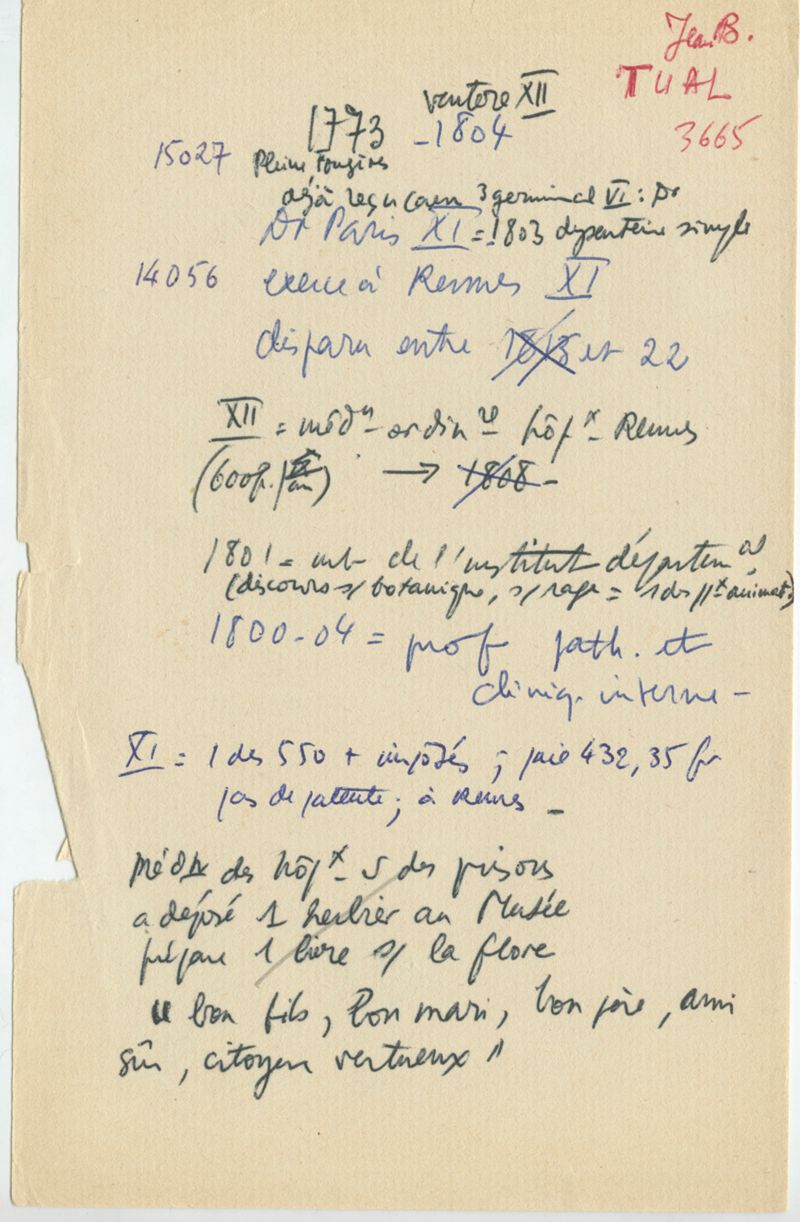 Jean B.
TUAL
3665
ventose XII
1773 - 1804
15027 Pleine Fougères
déjà reçu Caen 3 germinal VI : Dr
Dr Paris XI = 1803 dysenterie simple
14056 exerce à Rennes XI
disparu entre 1818 et 22
XII = médn ordinre hôpx Rennes
(600f. / an) → 1808 -
1801 = mb de l'institut départemal
(discours s/ botanique, s/ rage = 1 des animat)
1800-04 = prof path. et
cliniq. interne -
XI = 1 des 550 + imposés ; paie 432,35 fr
pas de patente ; à Rennes -
des hôpx des prisons
a déposé 1 herbier au Musée
prépare 1 livre s/ la flore
" bon fils, bon mari, bon père, ami
sûr, citoyen vertueux "